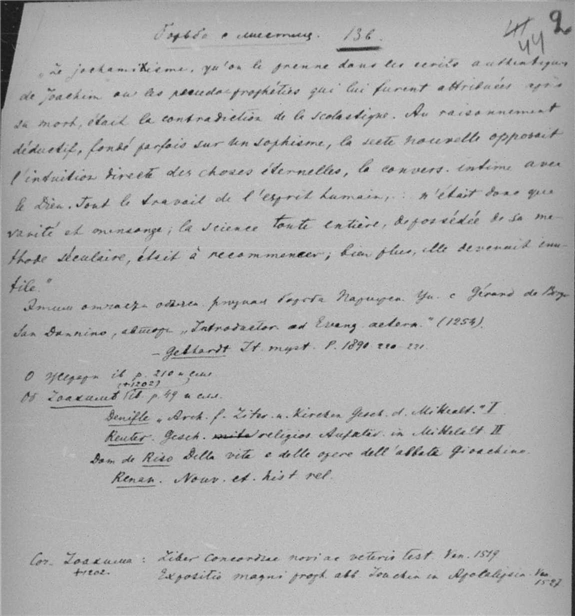 2
44
Борьба с мистиц. 136.
„Le joachimisme, qu'on le prenne dans les écrits authentiques
de Joachim ou les pseudo-prophéties qui lui furent attribuées après
sa mort, était la contradiction de la scolastique. Au raisonnement
déductif, fondé parfois sur un sophisme, la secte nouvelle opposait
l'intuition directe des choses éternelles, la convers. intime avec
le Dieu. Tout le travail de l'esprit humain, : n'était donc que
vanité et mensonge; la science toute entière, dépossédée de sa mé-
thode séculaire, était à recommencer; bien plus, elle devenait inu-
tile."
борьба Ун. с Gérard de Borgo
San Donnino, автора „Introductor. ad Evang. aetern." (1254).
– Gebhardt It. myst. P. 1890 220-221.
О ib. p. 210 и сл.
(+1202)
Об Іоахимѣ ib. p. 49 и сл.
Denifle „Arch. f. Liter. u. Kirchen Gesch. d. Mittealt." I.
Reuter. Gesch. religiös Aufklär. in Mittelalt. II
Dom de Riso Della vita e delle opere dell'abbate Gioachino.
Renan. Nouv. ét. hist rel.
Соч. Іоахима : Liber concordiae novi ac veteris test. Ven. 1519
+1202.
Expositio magni proph abb Joachim in Apocalipsin. Ven.
1527